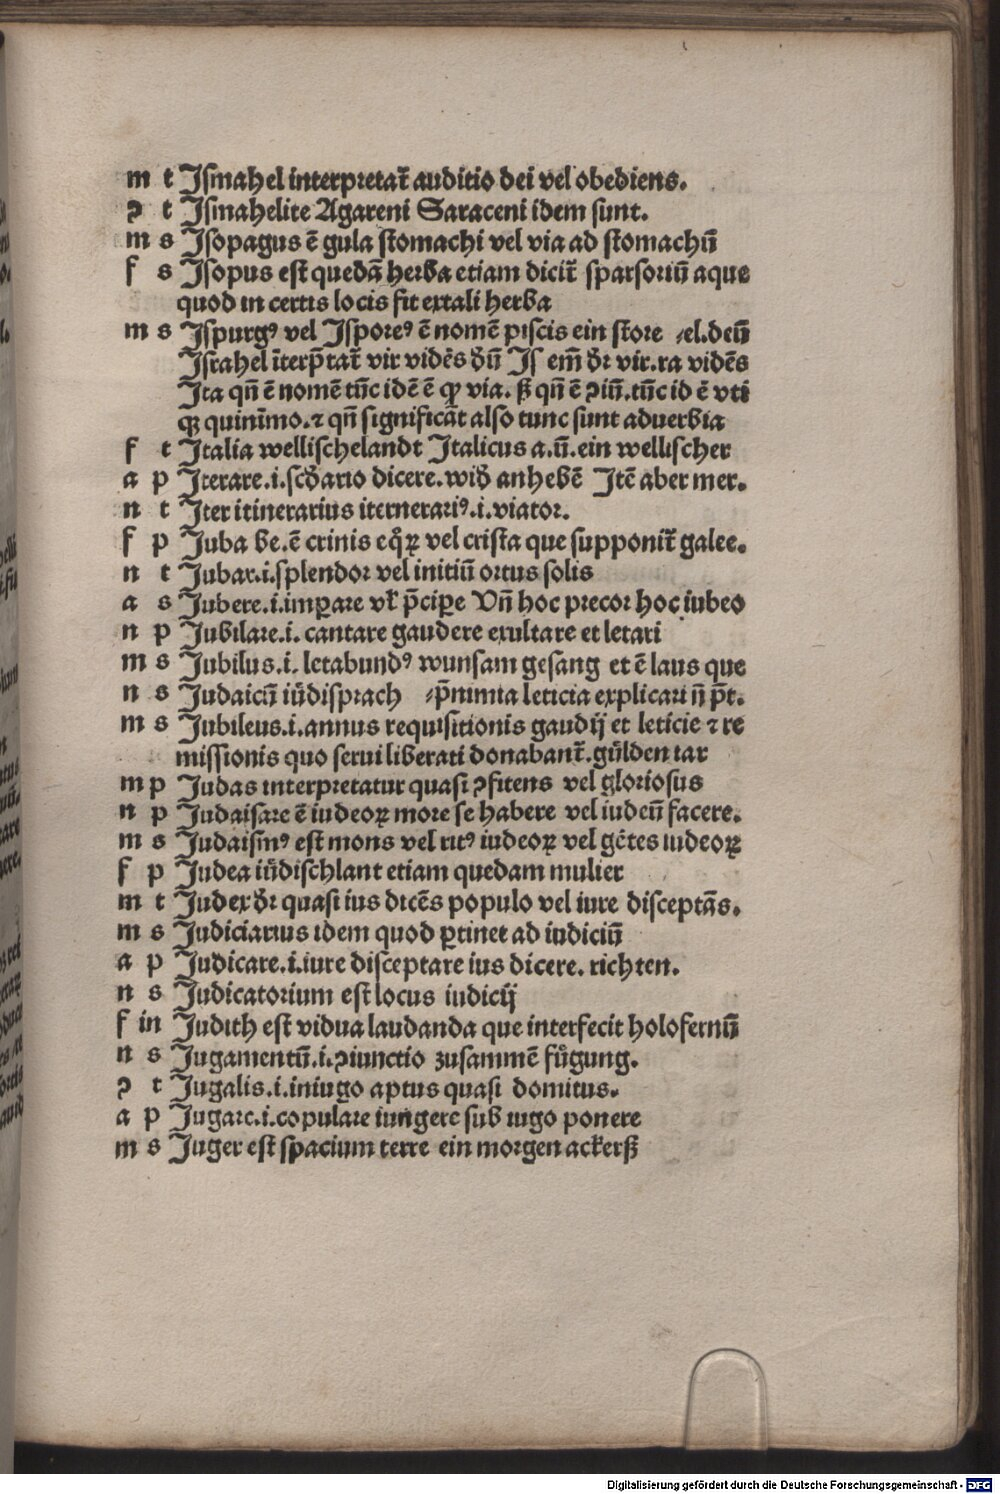 m t Jſmahel interpretat᷑ auditio dei vel obediens.
ꝯ t Jſmahelite Agareni Saraceni idem ſunt.
m s Jſopagus ē gula ſtomachi vel via ad ſtomachū
f s Jſopus eſt quedā herba etiam dicit᷑ ſparſoriū aque
quod in certis locis fit ex tali herba
m s Jſpurgꝰ vel Jſporeꝰ ē nomē piſcis ein ſtore ⸗el.deū
Jſrahel īterp̄tat᷑ vir vidēs dū Jſ em̄ dr vir.ra vidēs
Jta qn̄ ē nomē tūc idē ē qꝫ via. ß qn̄ ē ꝯiū.tūc id ē vti
qꝫ quinīmo.⁊ qn̄ ſignificāt alſo tunc ſunt aduerbia
f t Jtalia welliſchelandt Jtalicus a.ū.ein welliſcher
a p Jterare.i.ſcd̓ario dicere.wid̓ anhebē Jtē aber mer.
n t Jter itinerarius iternerariꝰ.i.viator.
f p Juba be.ē crinis eq̄ꝝ vel criſta que ſupponit᷑ galee.
n t Jubar.i.ſplendor vel initiū ortus ſolis
a s Jubere.i.imꝑare vl̓ p̄ciꝑe Vn̄ hoc precor hoc iubeo
n p Jubilare.i. cantare gaudere exultare et letari
m s Jubilus.i. letabundꝰ wunſam geſang et ē laus que
n s Judaicū iüdiſprach ⸗p̄nimia leticia explicari ū p̄t.
m s Jubileus.i.annus requiſitionis gaudij et leticie ⁊ re
miſſionis quo ſerui liberati donabant᷑.gülden iar
m p Judas interpretatur quaſi ꝯfitens vel glorioſus
n p Judaiſare ē iudeoꝝ more ſe habere vel iudeū facere.
m s Judaiſmꝰ eſt mons vel ritꝰ iudeoꝝ vel gētes iudeoꝝ
f p Judea iüdiſchlant etiam quedam mulier
m t Judex dr quaſi ius dicēs populo vel iure diſceptās.
m s Judiciarius idem quod ꝑtinet ad iudiciū
a p Judicare.i.iure diſceptare ius dicere. richten.
n s Judicatorium eſt locus iudicij
f in Judith eſt vidua laudanda que interfecit holofernū
n s Jugamentū.i.ꝯiunctio zuſammē fügung.
ꝯ t Jugalis.i.in iugo aptus quaſi domitus.
a p Jugare.i.copulare iungere ſub iugo ponere
m s Juger eſt ſpacium terre ein morgen ackerß
Digitalisierung gefördert durch die Deutsche Forschungsgemeinschaft - DFG